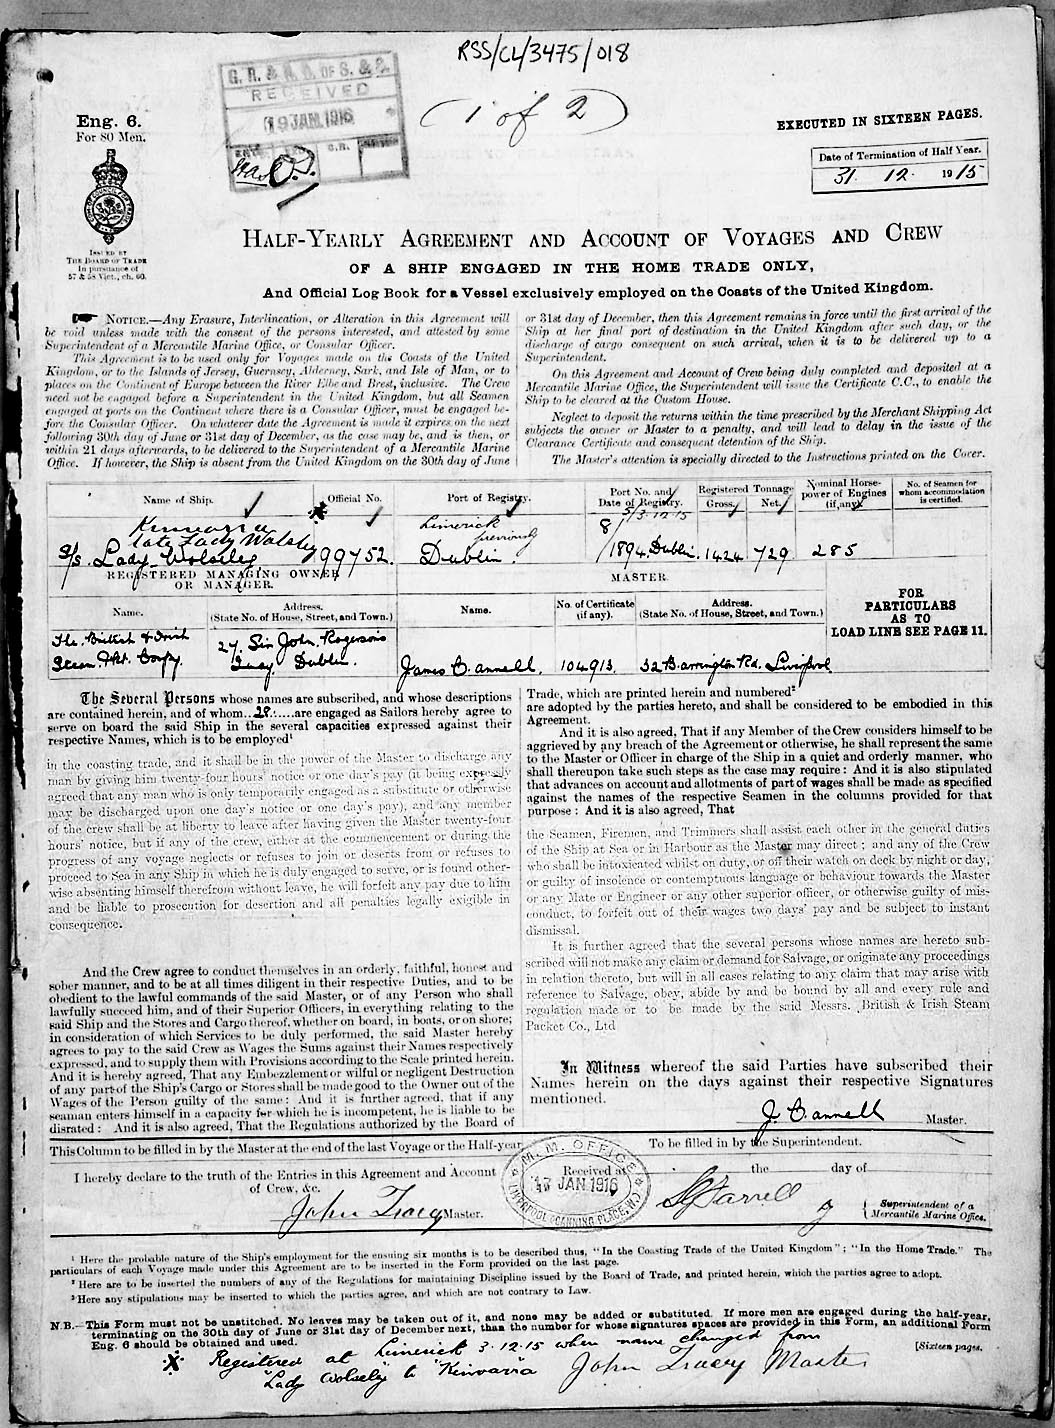 RSS/CL/3475/018
(1 of 2)
G. R. & R. O. OF S. & S.
RECEIVED
19 JAN. 1916
Eng. 6.
For 80 Men.
ISSUED BY
THE BOARD OF TRADE
In pursuance of
57 & 58 Vict., ch. 60.
EXECUTED IN SIXTEEN PAGES.
Date of Termination of Half Year.
31. 12. 1915
HALF-YEARLY AGREEMENT AND ACCOUNT OF VOYAGES AND CREW
OF A SHIP ENGAGED IN THE HOME TRADE ONLY,
And Official Log Book for a Vessel exclusively employed on the Coasts of the United Kingdom.
NOTICE.—Any Erasure, Interlineation, or Alteration in this Agreement will
be void unless made with the consent of the persons interested, and attested by some
Superintendent of a Mercantile Marine Office, or Consular Officer.
This Agreement is to be used only for Voyages made on the Coasts of the United
Kingdom, or to the Islands of Jersey, Guernsey, Alderney, Sark, and Isle of Man, or to
places on the Continent of Europe between the River Elbe and Brest, inclusive. The Crew
need not be engaged before a Superintendent in the United Kingdom, but all Seamen
engaged at ports on the Continent where there is a Consular Officer, must be engaged be-
fore the Consular Officer. On whatever date the Agreement is made it expires on the next
following 30th day of June or 31st day of December, as the case may be, and is then, or
within 21 days afterwards, to be delivered to the Superintendent of a Mercantile Marine
Office. If however, the Ship is absent from the United Kingdom on the 30th day of June
or 31st day of December, then this Agreement remains in force until the first arrival of the
Ship at her final port of destination in the United Kingdom after such day, or the
discharge of cargo consequent on such arrival, when it is to be delivered up to a
Superintendent.
On this Agreement and Account of Crew being duly completed and deposited at a
Mercantile Marine Office, the Superintendent will issue the Certificate C.C., to enable the
Ship to be cleared at the Custom House.
Neglect to deposit the returns within the time prescribed by the Merchant Shipping Act
subjects the owner or Master to a penalty, and will lead to delay in the issue of the
Clearance Certificate and consequent detention of the Ship.
The Master's attention is specially directed to the Instructions printed on the Cover.
Name of Ship.
Official No.
Port of Registry.
Port No. and
Date of Registry.
Registered Tonnage
Gross. Net.
Nominal Horse-
power of Engines
(if any)
No. of Seamen for
whom accommodation
is certified.
Kinvarra
late Lady Wolseley
S/S. Lady Wolseley
99752.
Limerick
previously
Dublin.
3.12.15
8/1894 Dublin.
1424
729
285
REGISTERED MANAGING OWNER
OR MANAGER.
MASTER.
Name.
Address.
(State No. of House, Street, and Town.)
Name.
No. of Certificate
(if any).
Address.
(State No. of House, Street, and Town.)
FOR
PARTICULARS
AS TO
LOAD LINE SEE PAGE 11.
The British & Irish
Steam Pkt. Compy.
27, Sir John Rogersons
Quay Dublin.
James Cannell.
104913.
32 Barrington Rd. Liverpool
The Several Persons whose names are subscribed, and whose descriptions
are contained herein, and of whom 28 are engaged as Sailors hereby agree to
serve on board the said Ship in the several capacities expressed against their
respective Names, which is to be employed¹
in the coasting trade, and it shall be in the power of the Master to discharge any
man by giving him twenty-four hours' notice or one day's pay (it being expressly
agreed that any man who is only temporarily engaged as a substitute or otherwise
may be discharged upon one day's notice or one day's pay), and any member
of the crew shall be at liberty to leave after having given the Master twenty-four
hours' notice, but if any of the crew, either at the commencement or during the
progress of any voyage neglects or refuses to join or deserts from or refuses to
proceed to Sea in any Ship in which he is duly engaged to serve, or is found other-
wise absenting himself therefrom without leave, he will forfeit any pay due to him
and be liable to prosecution for desertion and all penalties legally exigible in
consequence.
And the Crew agree to conduct themselves in an orderly, faithful, honest and
sober manner, and to be at all times diligent in their respective Duties, and to be
obedient to the lawful commands of the said Master, or of any Person who shall
lawfully succeed him, and of their Superior Officers, in everything relating to the
said Ship and the Stores and Cargo thereof, whether on board, in boats, or on shore;
in consideration of which Services to be duly performed, the said Master hereby
agrees to pay to the said Crew as Wages the Sums against their Names respectively
expressed, and to supply them with Provisions according to the Scale printed herein.
And it is hereby agreed, That any Embezzlement or wilful or negligent Destruction
of any part of the Ship's Cargo or Stores shall be made good to the Owner out of the
Wages of the Person guilty of the same: And it is further agreed, that if any
seaman enters himself in a capacity for which he is incompetent, he is liable to be
disrated: And it is also agreed, That the Regulations authorized by the Board of
Trade, which are printed herein and numbered²
are adopted by the parties hereto, and shall be considered to be embodied in this
Agreement.
And it is also agreed, That if any Member of the Crew considers himself to be
aggrieved by any breach of the Agreement or otherwise, he shall represent the same
to the Master or Officer in charge of the Ship in a quiet and orderly manner, who
shall thereupon take such steps as the case may require: And it is also stipulated
that advances on account and allotments of part of wages shall be made as specified
against the names of the respective Seamen in the columns provided for that
purpose: And it is also agreed, That
the Seamen, Firemen, and Trimmers shall assist each other in the general duties
of the Ship at Sea or in Harbour as the Master may direct; and any of the Crew
who shall be intoxicated whilst on duty, or off their watch on deck by night or day,
or guilty of insolence or contemptuous language or behaviour towards the Master
or any Mate or Engineer or any other superior officer, or otherwise guilty of mis-
conduct, to forfeit out of their wages two days' pay and be subject to instant
dismissal.
It is further agreed that the several persons whose names are hereto sub-
scribed will not make any claim or demand for Salvage, or originate any proceedings
in relation thereto, but will in all cases relating to any claim that may arise with
reference to Salvage, obey, abide by and be bound by all and every rule and
regulation made or to be made by the said Messrs. British & Irish Steam
Packet Co., Ltd
In Witness whereof the said Parties have subscribed their
Names herein on the days against their respective Signatures
mentioned.
J. Cannell Master.
This Column to be filled in by the Master at the end of the last Voyage or the Half-year.
To be filled in by the Superintendent.
I hereby declare to the truth of the Entries in this Agreement and Account
of Crew, &c.
John Tracy Master.
M. M. OFFICE
17 JAN 1916
Received at the day of
Farrell
Superintendent of a
Mercantile Marine Office.
¹ Here the probable nature of the Ship's employment for the ensuing six months is to be described thus, "In the Coasting Trade of the United Kingdom"; "In the Home Trade." The
particulars of each Voyage made under this Agreement are to be inserted in the Form provided on the last page.
² Here are to be inserted the numbers of any of the Regulations for maintaining Discipline issued by the Board of Trade, and printed herein, which the parties agree to adopt.
³ Here any stipulations may be inserted to which the parties agree, and which are not contrary to Law.
N.B.—This Form must not be unstitched. No leaves may be taken out of it, and none may be added or substituted. If more men are engaged during the half-year,
terminating on the 30th day of June or 31st day of December next, than the number for whose signatures spaces are provided in this Form, an additional Form
Eng. 6 should be obtained and used.
[Sixteen pages.
X Registered at Limerick 3.12.15 when name changed from
"Lady Wolseley" to "Kinvarra" John Tracey Master